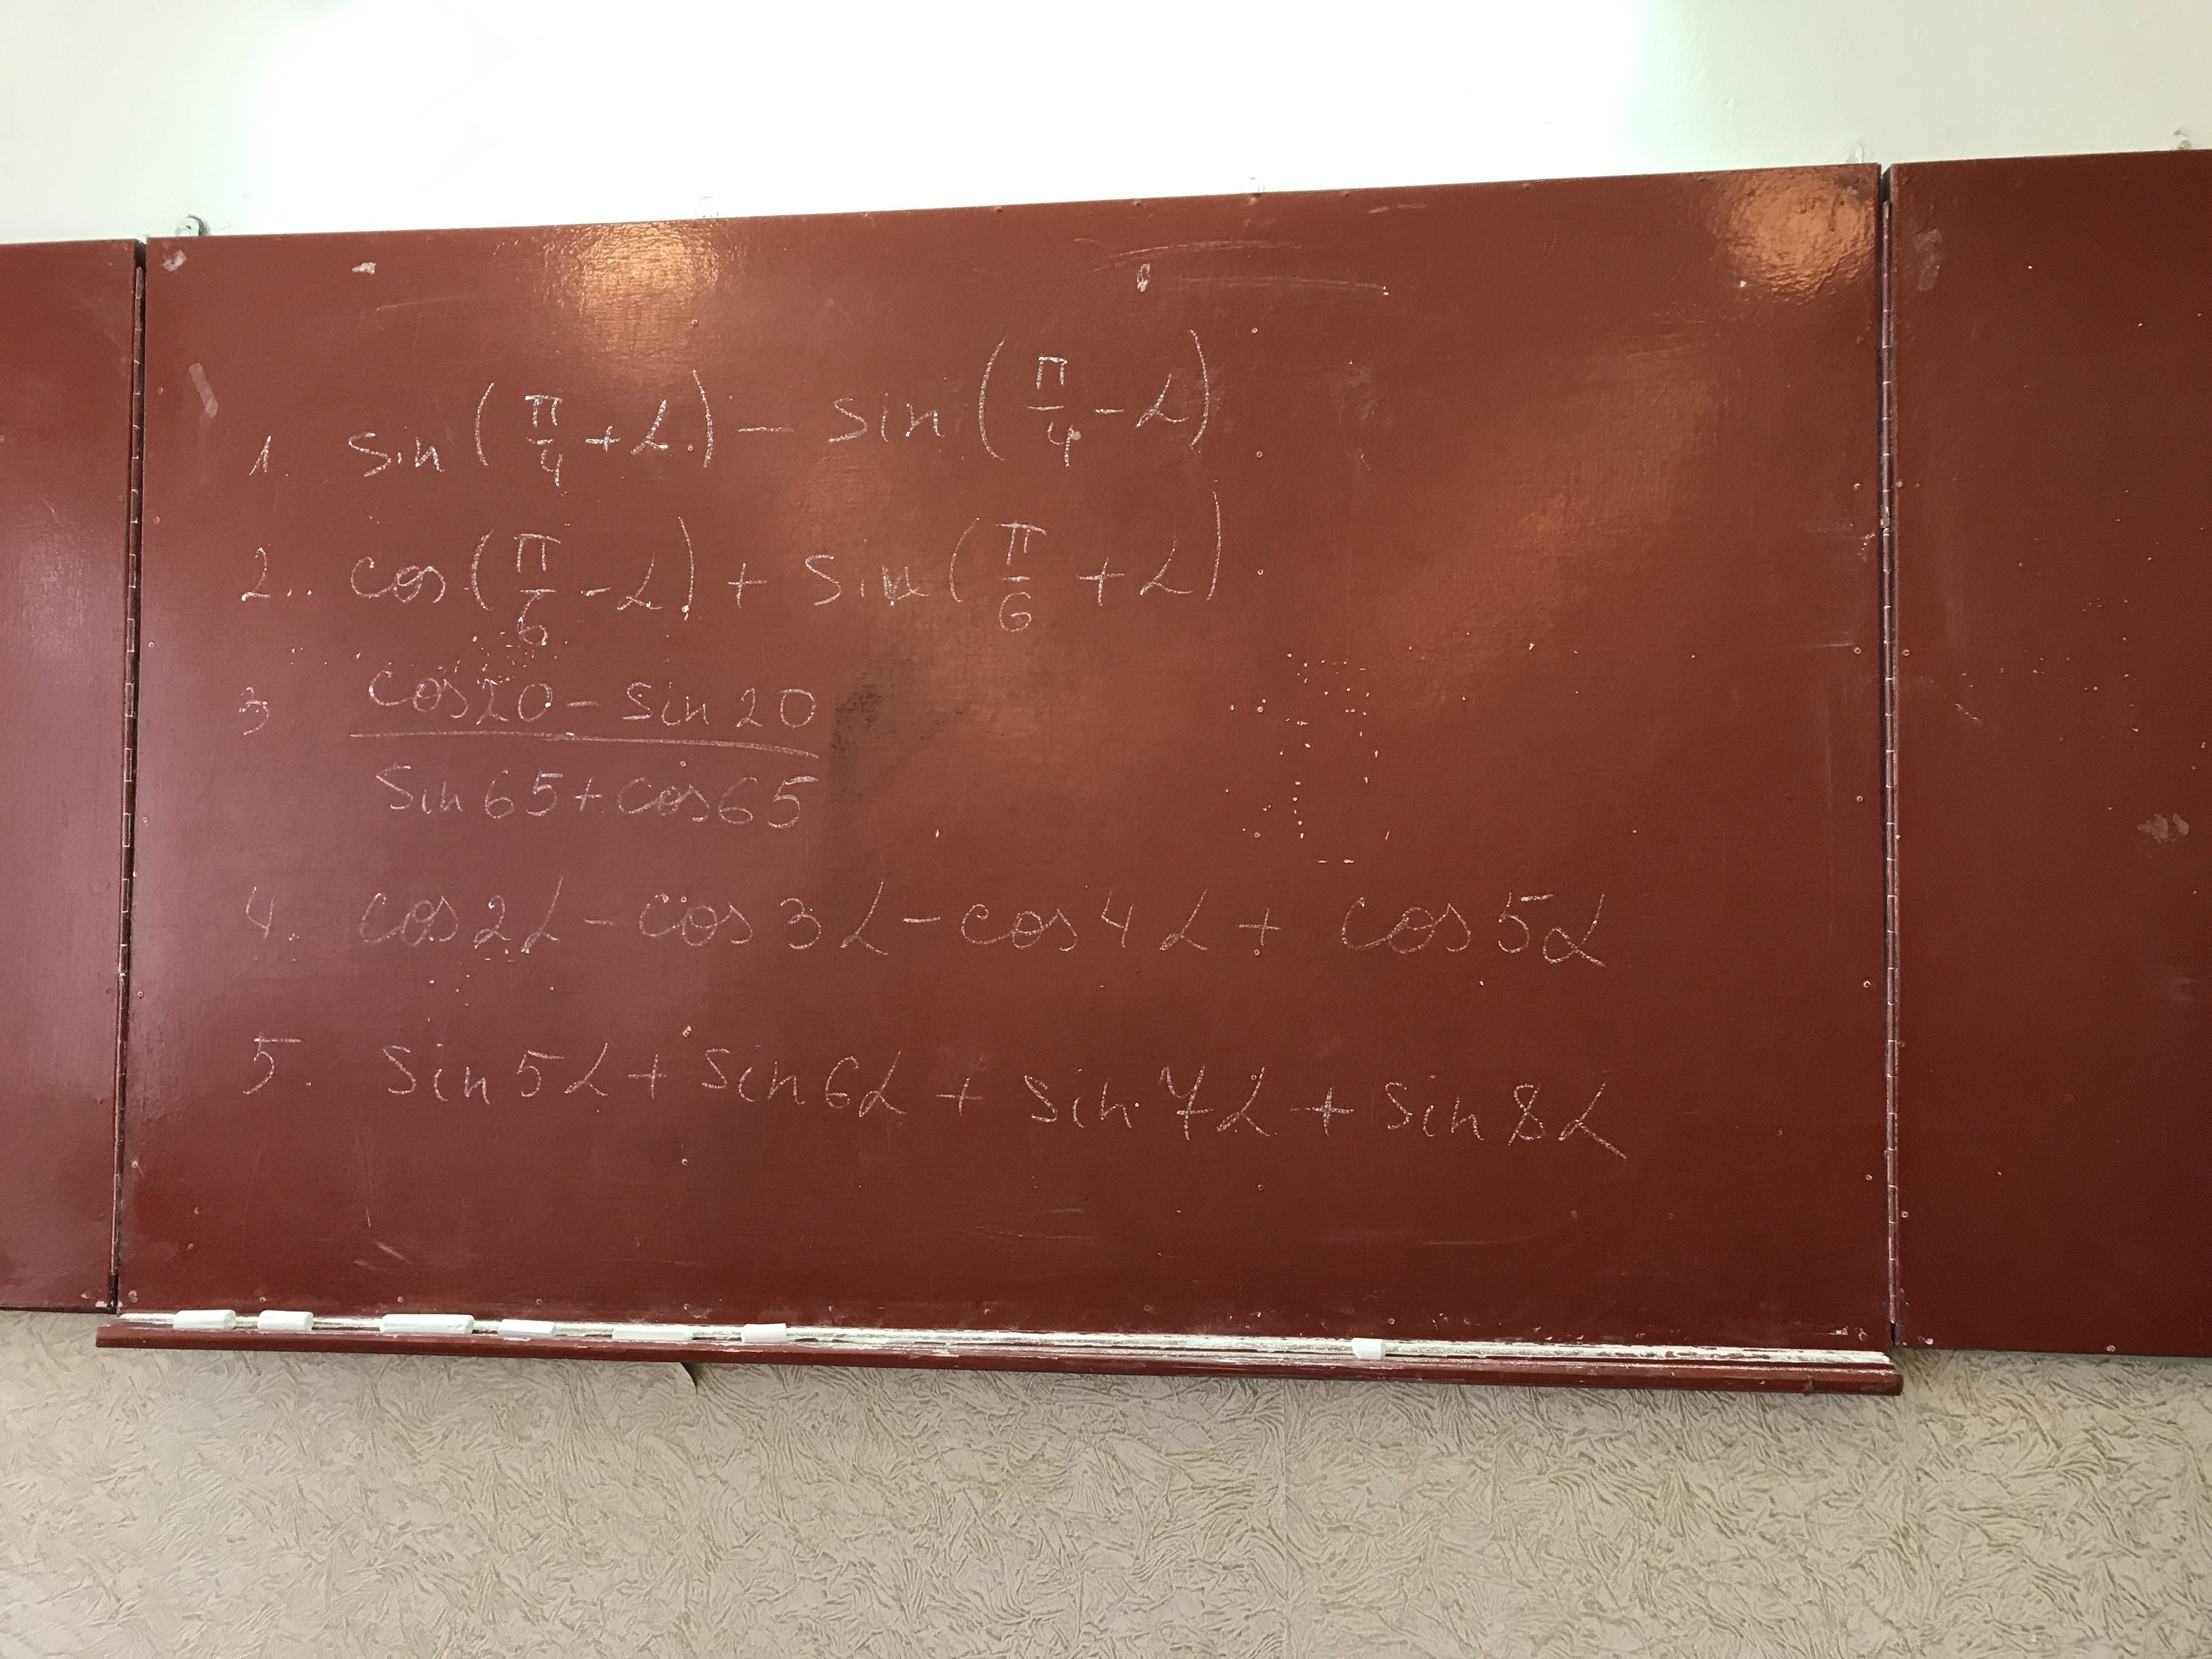 1. sin(π/4 + α) - sin(π/4 - α)
2. cos(π/6 - α) + sin(π/6 + α)
3 cos20 - sin20
sin65 + cos65
4. cos2α - cos3α - cos4α + cos5α
5. sin5α + sin6α + sin7α + sin8α